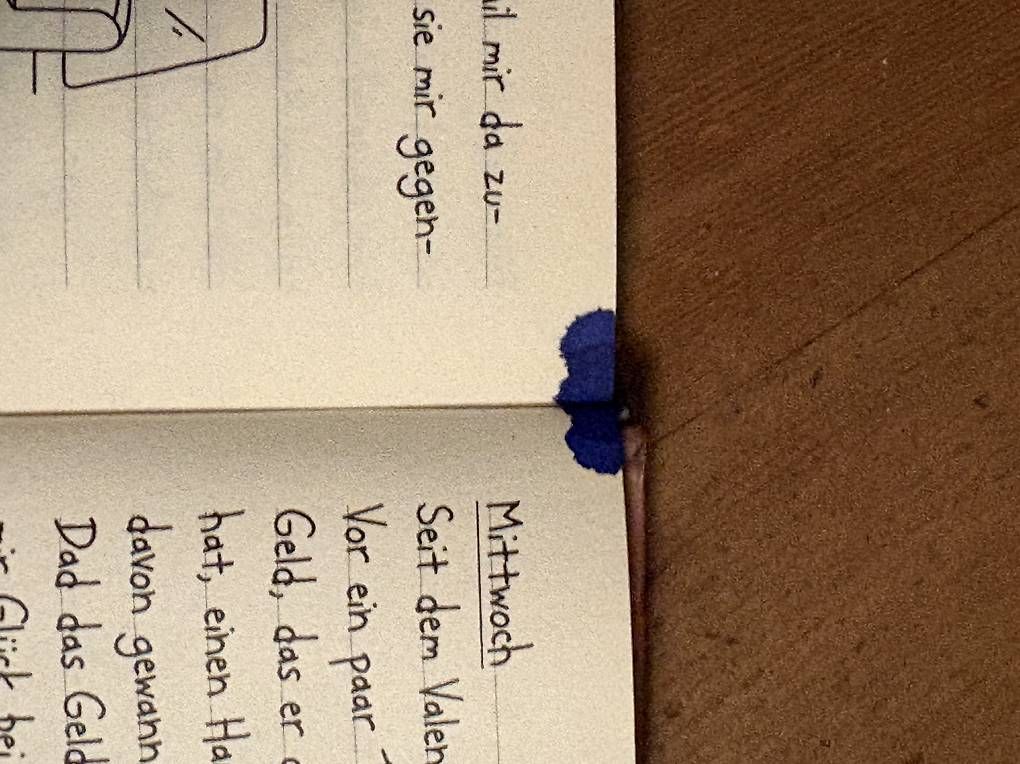 mir da zu-
sie mir gegen-
Mittwoch
Seit dem Valen
Vor ein paar
Geld, das er
hat, einen Ha
davon gewann
Dad das Geld
Glück bei